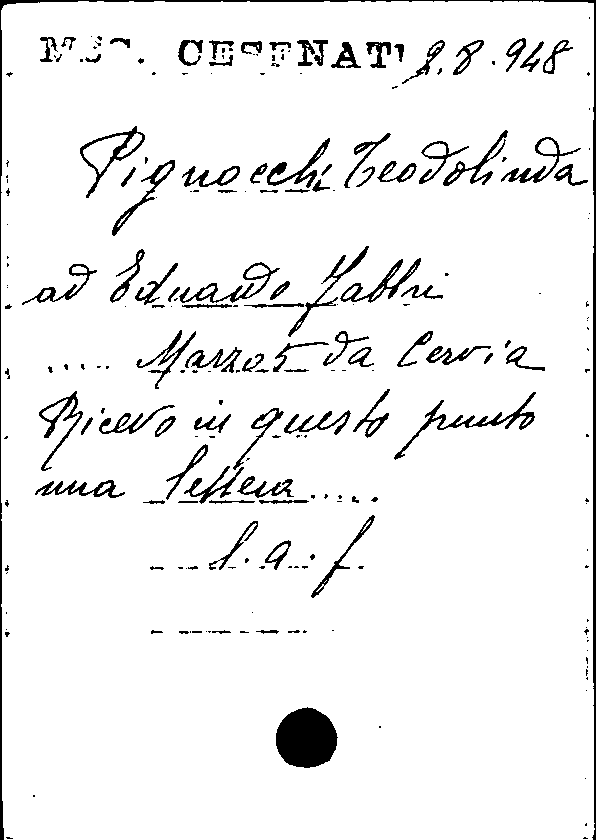 MSS. CESENATI 2.8.948
Pignocchi Teodolinda
ad Eduardo Fabbri
..... Marzo 5 da Cervia
Ricevo in questo punto
una lettera.....
l. a. f.